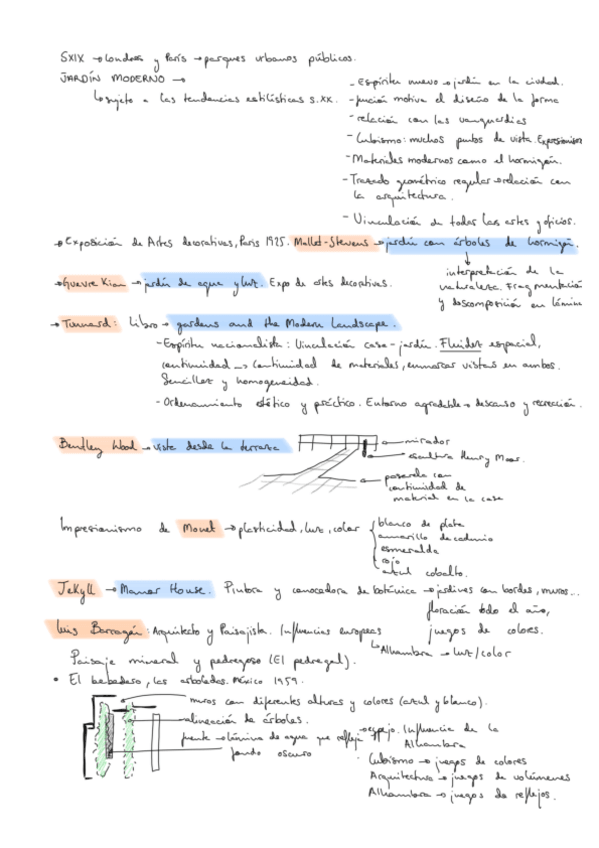 SXIX → Londres y París → parques urbanos públicos.
JARDÍN MODERNO →
↳ sujeto a las tendencias estilísticas s.XX.
- Espíritu nuevo → jardín en la ciudad.
- función motiva el diseño de la forma
- relación con las vanguardias
- Cubismo: muchos puntos de vista. Expresionismo
- Materiales modernos como el hormigón.
- Trazado geométrico regular → relación con
la arquitectura.
- Vinculación de todas las artes y oficios.
→ Exposición de Artes decorativas, París 1925. Mallet-Stevens → jardín con árboles de hormigón.
↓
interpretación de la
naturaleza. Fragmentación
y descomposición en lámina
→ Guevrekian → jardín de agua y luz. Expo de artes decorativas.
→ Tunnard: Libro → gardens and the Modern Landscape.
- Espíritu racionalista: Vinculación casa-jardín. Fluidez espacial,
continuidad → continuidad de materiales, enmarcar vistas en ambos.
Sencillez y homogeneidad.
- Ordenamiento estético y práctico. Entorno agradable → descanso y recreación.
Bentley Wood → vista desde la terraza
mirador
escultura Henry Moor.
pasarela con
continuidad de
material en la casa
Impresionismo de Monet → plasticidad, luz, color
blanco de plata
amarillo de cadmio
esmeralda
rojo
azul cobalto.
Jekyll → Manor House. Pintora y conocedora de botánica → jardines con bordes, muros...
floración todo el año,
juegos de colores.
Luis Barragán: Arquitecto y Paisajista. Influencias europeas
↳ Alhambra → luz/color
Paisaje mineral y pedregoso (El pedregal).
• El bebedero, las arboledas. México 1959.
muros con diferentes alturas y colores (azul y blanco).
alineación de árboles.
fuente → lámina de agua que refleja → espejo. Influencia de la
Alhambra
fondo oscuro
Cubismo → juegos de colores
Arquitectura → juegos de volúmenes
Alhambra → juegos de reflejos.